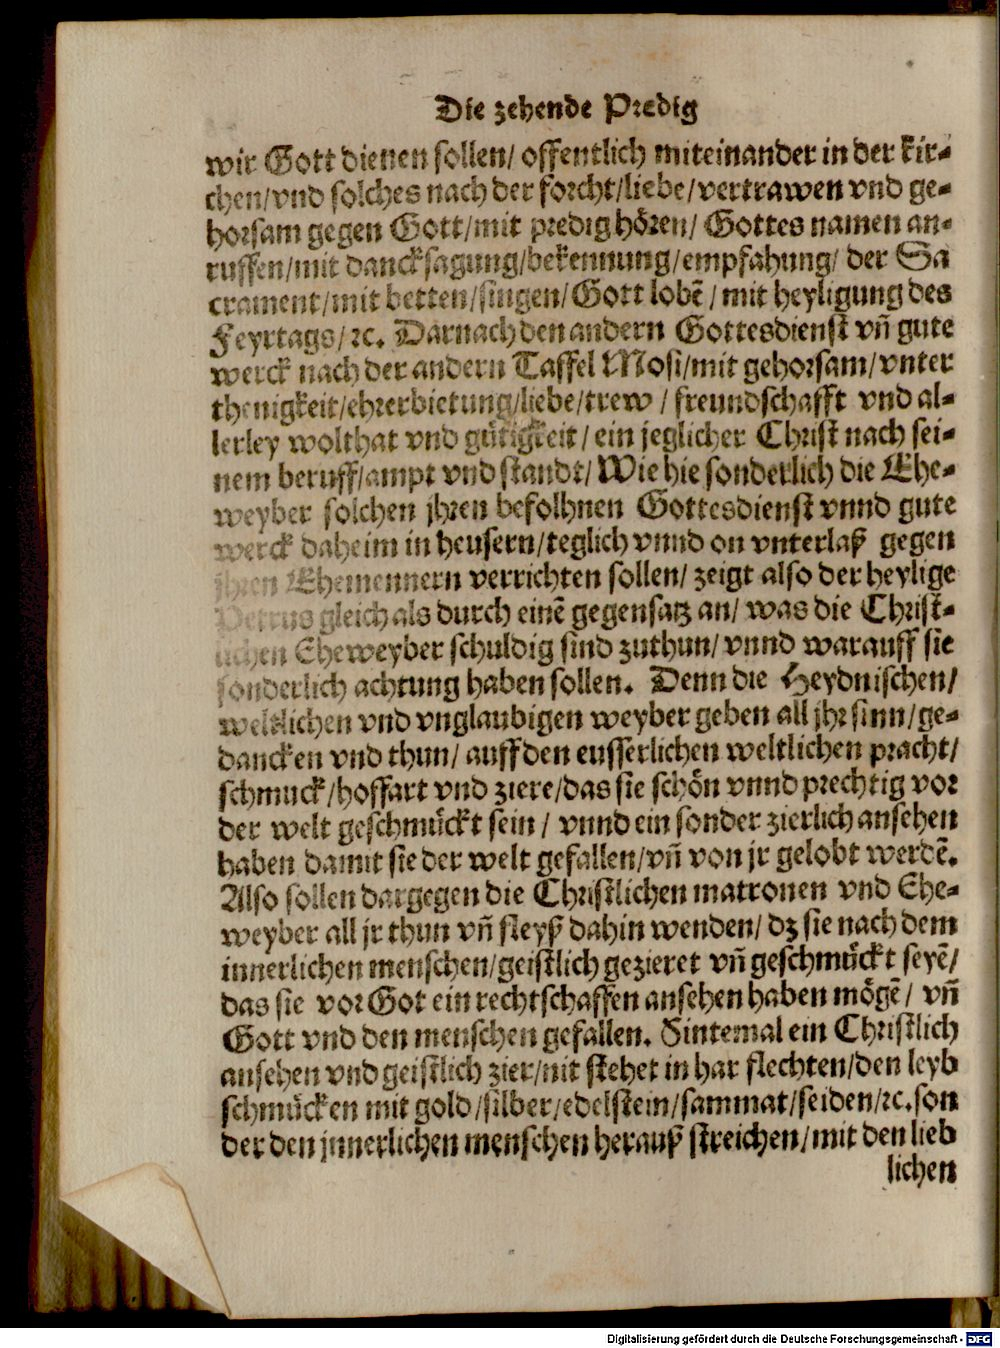 Die zehende Predig
wir Gott dienen sollen/ offentlich miteinander in der kir-
chen/vnd solches nach der forcht/liebe/vertrawen vnd ge-
horsam gegen Gott/mit predig hören/ Gottes namen an-
ruffen/mit dancksagung/bekennung/empfahung/ der Sa
crament/mit betten/singen/Gott lobē/ mit heyligung des
Feyrtags/ꝛc. Darnach den andern Gottesdienst vn̄ gute
werck nach der andern Taffel Mosi/mit gehorsam/vnter
thenigkeit/ehrerbietung/liebe/trew / freundschafft vnd al-
lerley wolthat vnd gütigkeit/ ein jeglicher Christ nach sei-
nem beruff/ampt vnd standt/ Wie hie sonderlich die Ehe-
weyber solchen jhren befolhnen Gottesdienst vnnd gute
werck daheim in heusern/teglich vnnd on vnterlaß gegen
jhren Ehemennern verrichten sollen/ zeigt also der heylige
Petrus gleich als durch einē gegensatz an/ was die Christ-
lichen Eheweyber schuldig sind zuthun/ vnnd warauff sie
sonderlich achtung haben sollen. Denn die Heydnischen/
weltlichen vnd vnglaubigen weyber geben all jhr sinn/ge-
dancken vnd thun/ auff den eusserlichen weltlichen pracht/
schmuck/hoffart vnd ziere/das sie schön vnnd prechtig vor
der welt geschmückt sein / vnnd ein sonder zierlich ansehen
haben damit sie der welt gefallen/vn̄ von jr gelobt werdē.
Also sollen dargegen die Christlichen matronen vnd Ehe-
weyber all jr thun vn̄ fleyß dahin wenden/ dz sie nach dem
innerlichen menschen/geistlich gezieret vn̄ geschmückt seyē/
das sie vor Got ein rechtschaffen ansehen haben mögē/ vn̄
Gott vnd den menschen gefallen. Sintemal ein Christlich
ansehen vnd geistlich zier/nit stehet in har flechten/den leyb
schmücken mit gold/silber/edelstein/sammat/seiden/ꝛc.son
der den jnnerlichen menschen herauß streichen/mit den lieb
lichen
Digitalisierung gefördert durch die Deutsche Forschungsgemeinschaft - DFG